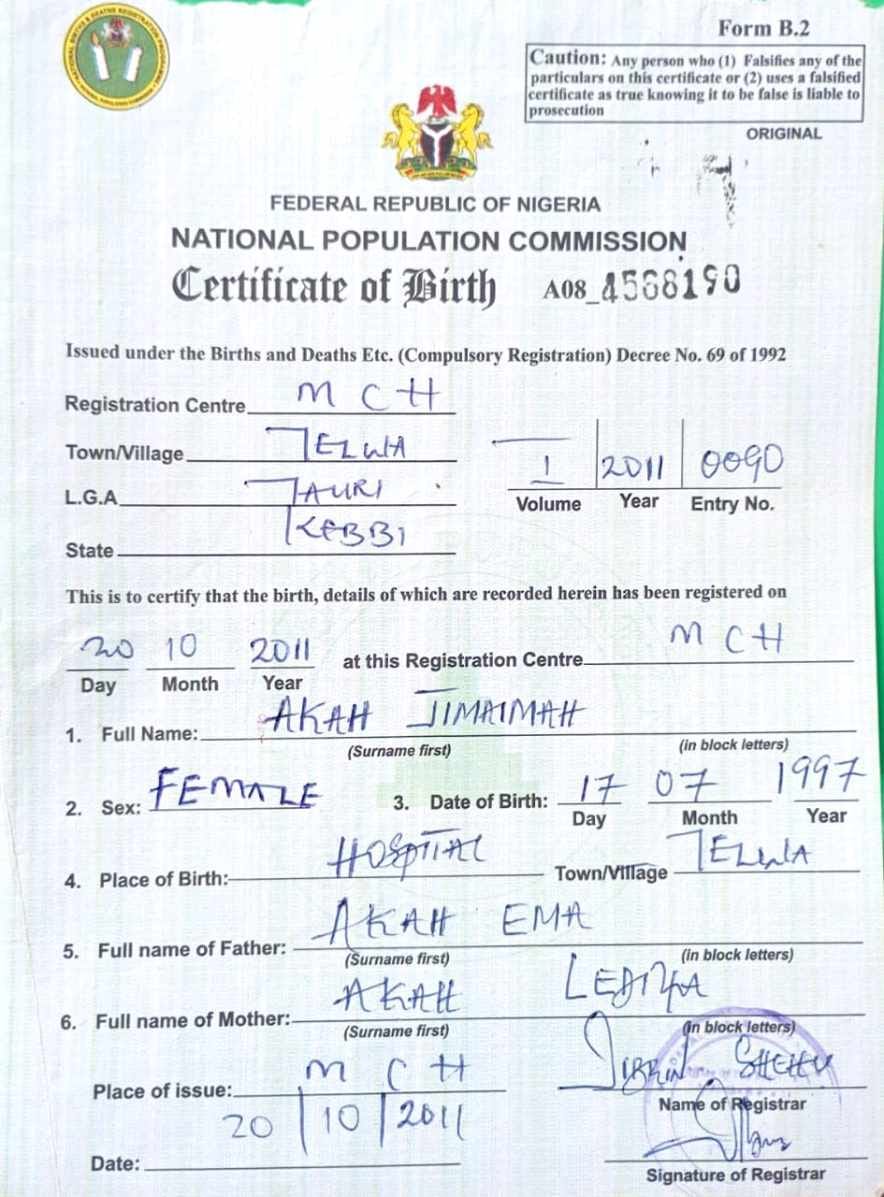 Form B.2
Caution: Any person who (1) Falsifies any of the
particulars on this certificate or (2) uses a falsified
certificate as true knowing it to be false is liable to
prosecution
ORIGINAL
FEDERAL REPUBLIC OF NIGERIA
NATIONAL POPULATION COMMISSION
Certificate of Birth A08_4568190
Issued under the Births and Deaths Etc. (Compulsory Registration) Decree No. 69 of 1992
Registration Centre MCH
Town/Village TELWA
1 2011 0090
L.G.A JAURI
Volume Year Entry No.
State KEBBI
This is to certify that the birth, details of which are recorded herein has been registered on
20 10 2011 at this Registration Centre MCH
Day Month Year
1. Full Name: AKAH JIMAIMAH
(Surname first) (in block letters)
2. Sex: FEMALE 3. Date of Birth: 17 07 1997
Day Month Year
4. Place of Birth: HOSPITAL Town/Village TELWA
5. Full name of Father: AKAH EMA
(Surname first) (in block letters)
6. Full name of Mother: AKAH
(Surname first) (in block letters)
Place of issue: MCH JIBRIN SHEHU
Name of Registrar
Date: 20 10 2011
Signature of Registrar